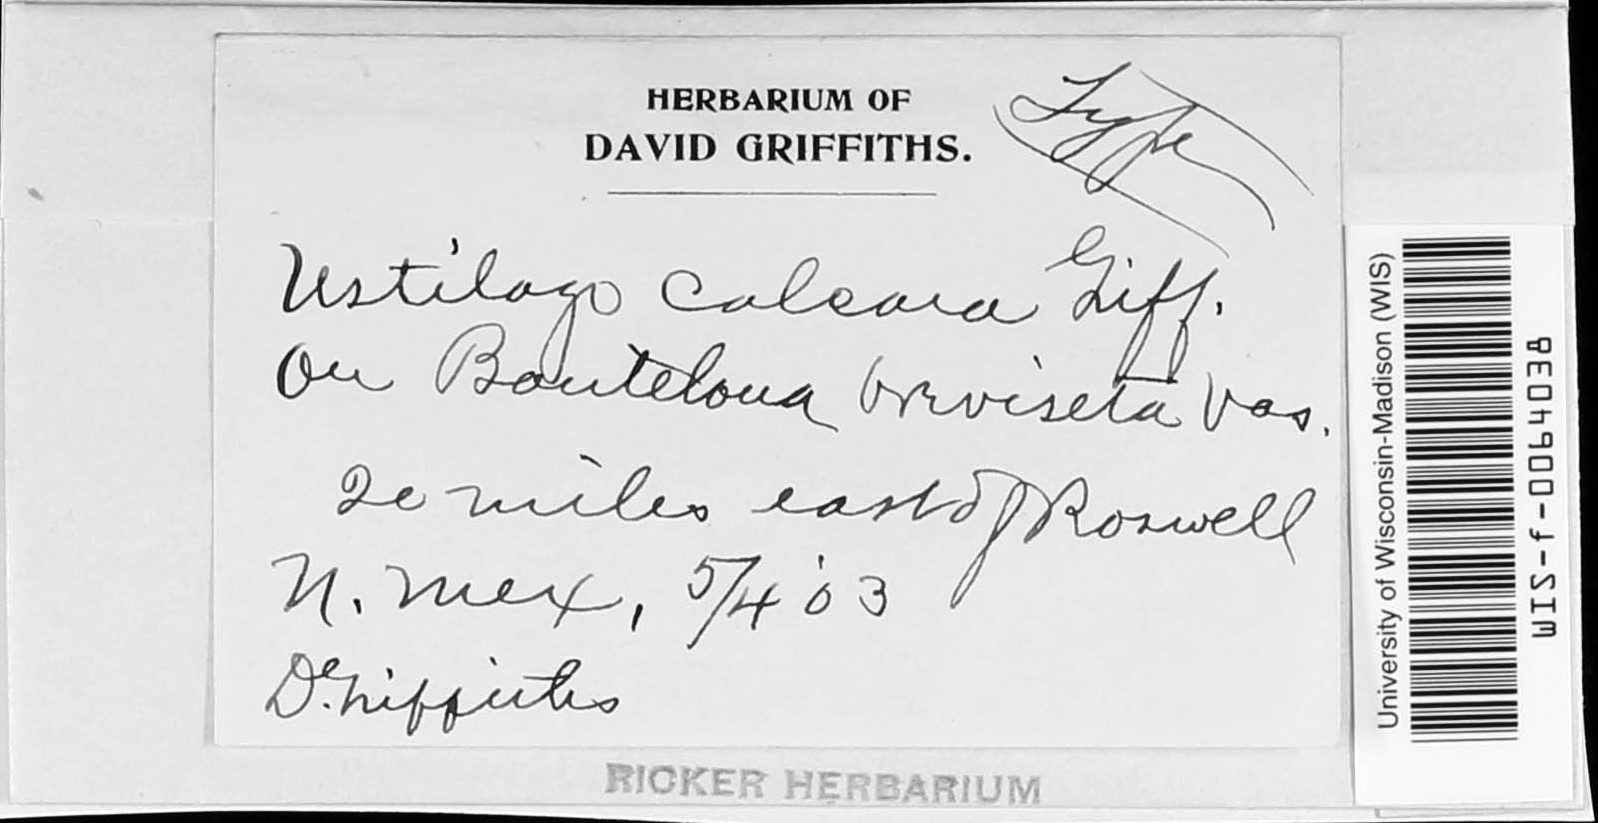 HERBARIUM OF
DAVID GRIFFITHS.
Type
Ustilago calcara Griff.
On Bouteloua breviseta Vas.
20 miles east of Roswell
N. Mex, 5/4 '03
D. Griffiths
RICKER HERBARIUM
University of Wisconsin-Madison (WIS)
WIS-f-0064038